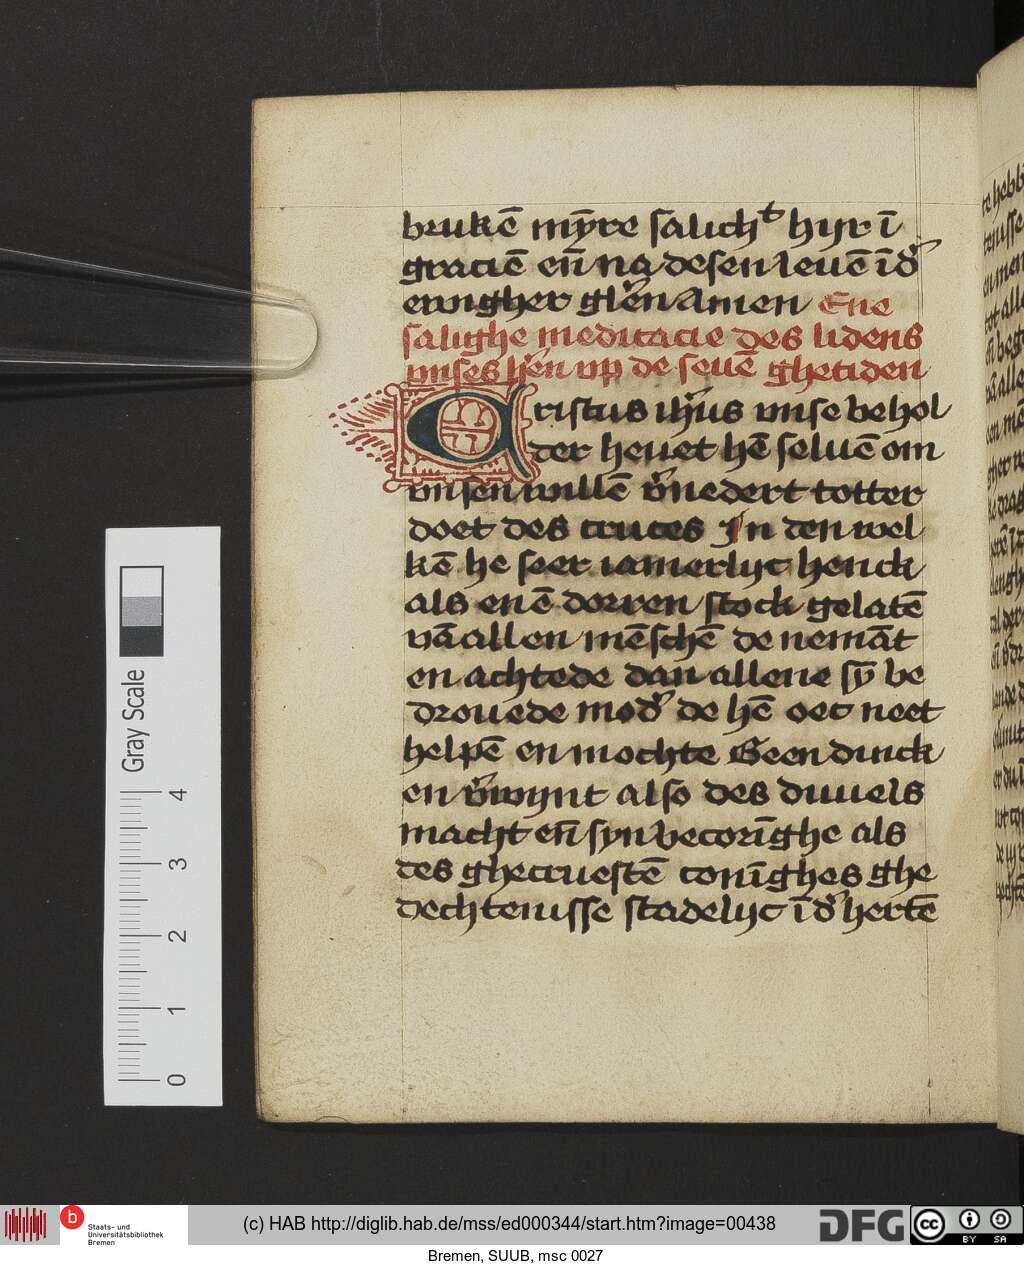 brukē mȳre salichᵗ hijr ī
graciē en̄ na desen leuē ī d'
ewigher gl'en Amen Ene
salighe meditacie des lidens
vnses h'en vp de seuē ghetiden
Cristus ih'us vnse behol
der heuet hē seluē om
vnsen willē v'nedert totter
doet des cruces In den wel
kē he seer iamerlijc henck
als enē dorren stock gelatē
vā allen mēschē de nemāt
en achtede dan allene sȳ be
drouede mod' de hē oec neet
helpē en mochte Geen dinck
en v'wijnt also des duuels
macht en̄ syn becorīghe als
des ghecruestē conīghes ghe
dechtenisse stadelijc ī d' hertē
Gray Scale
0 1 2 3 4
Staats- und
Universitätsbibliothek
Bremen
(c) HAB http://diglib.hab.de/mss/ed000344/start.htm?image=00438
DFG
cc BY SA
Bremen, SUUB, msc 0027